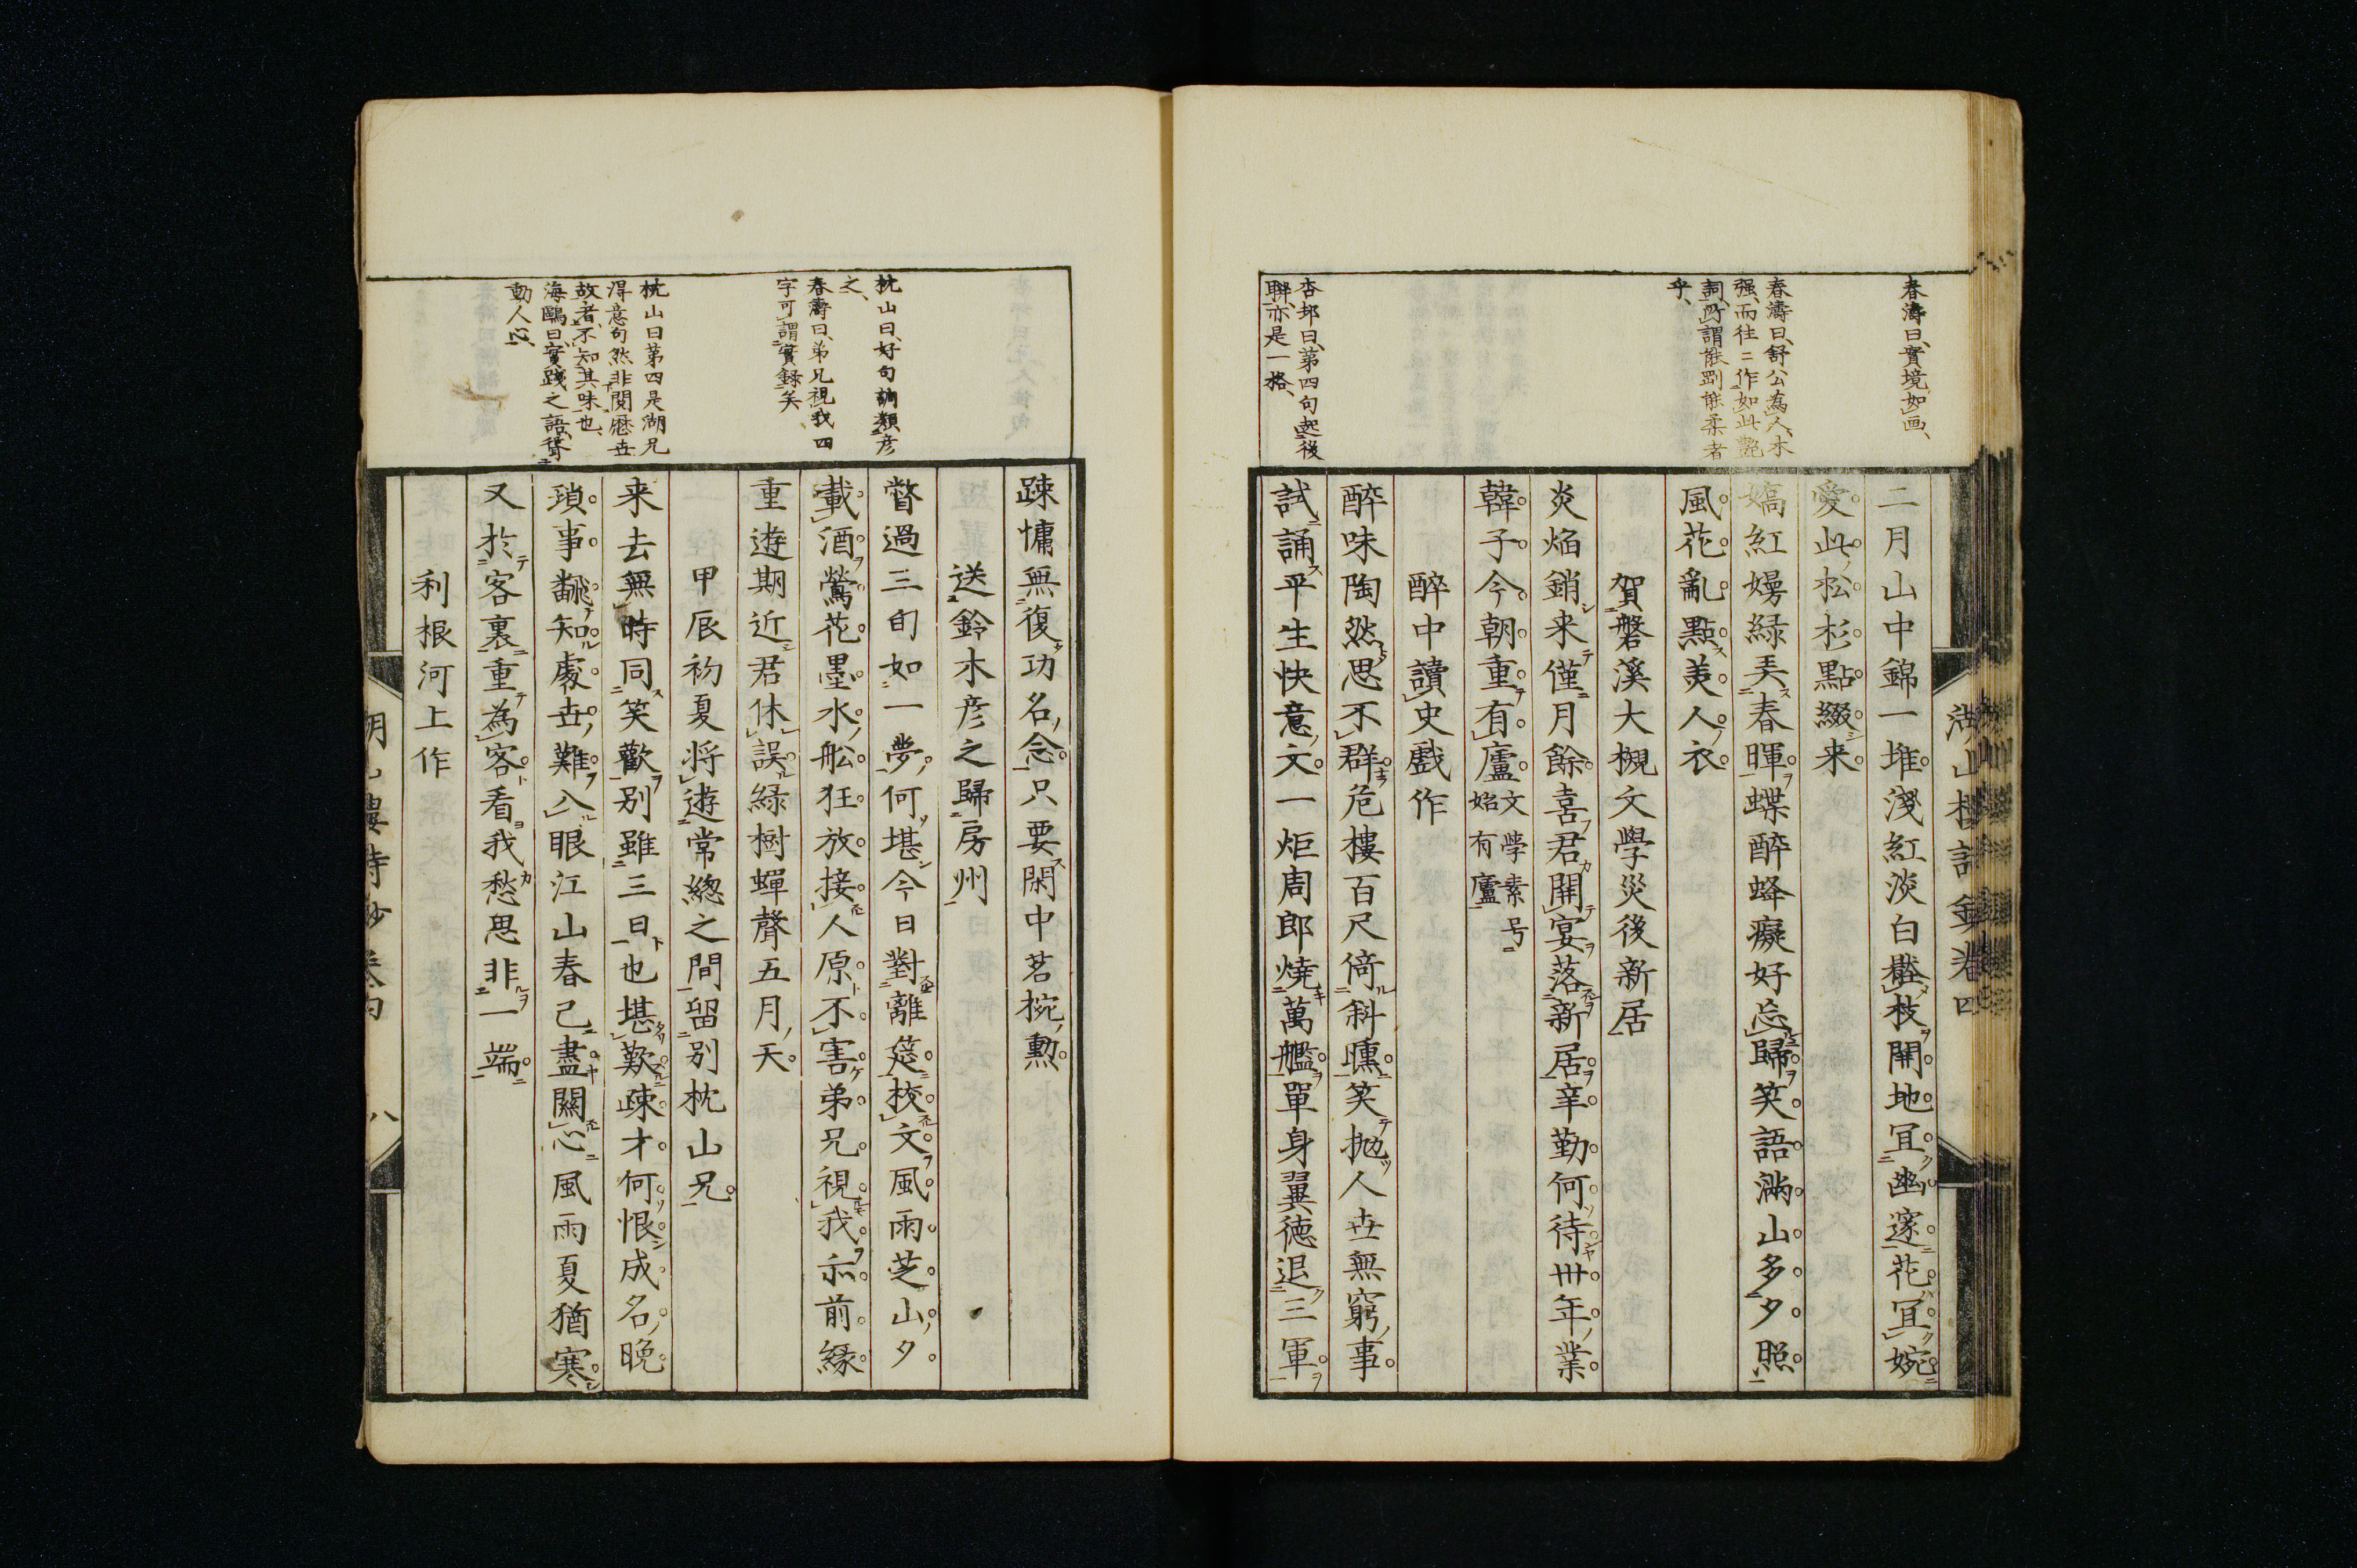 春濤曰、實境如画、
春濤曰、舒公為人木
强、而往二作如此艶
詞、所謂能剛能柔者
乎、
杏邨曰、第四句起後
聯、亦是一格、
二月山中錦一堆淺紅淡白
枝開地冝幽邃花冝婉
愛此松杉點綴来
嬌紅嫚緑弄春暉蝶醉蜂癡好忘歸笑語滿山多夕照
風花亂點美人衣
賀磐溪大槻文學災後新居
炎焔銷来僅月餘喜君開宴落新居辛勤何待丗年業
韓子今朝重有廬文學素号
始有廬
醉中讀史戲作
醉味陶然思不群危樓百尺倚斜曛笑抛人世無窮事
試誦平生快意文一炬周郎燒萬艦單身翼徳退三軍
枕山曰、好句調類彦
之、
春濤曰、弟兄視我四
字可謂實録矣、
枕山曰第四是湖兄
得意句然非閲歴世
故者、不知其味也、
海鷗曰、實踐之語、聳
動人心、
疎慵無復功名念只要閑中茗椀勲
送鈴木彦之歸房州
瞥過三旬如一夢何堪今日對離筵校文風雨芝山夕
載酒鶯花墨水舩狂放接人原不害弟兄視我示前縁
重遊期近君休誤緑樹蟬聲五月天
甲辰初夏將遊常總之間留別枕山兄
来去無時同笑歡別雖三日也堪歎疎才何恨成名晩
瑣事飜知處世難入眼江山春已盡關心風雨夏猶寒
又於客裏重為客看我愁思非一端
利根河上作
八